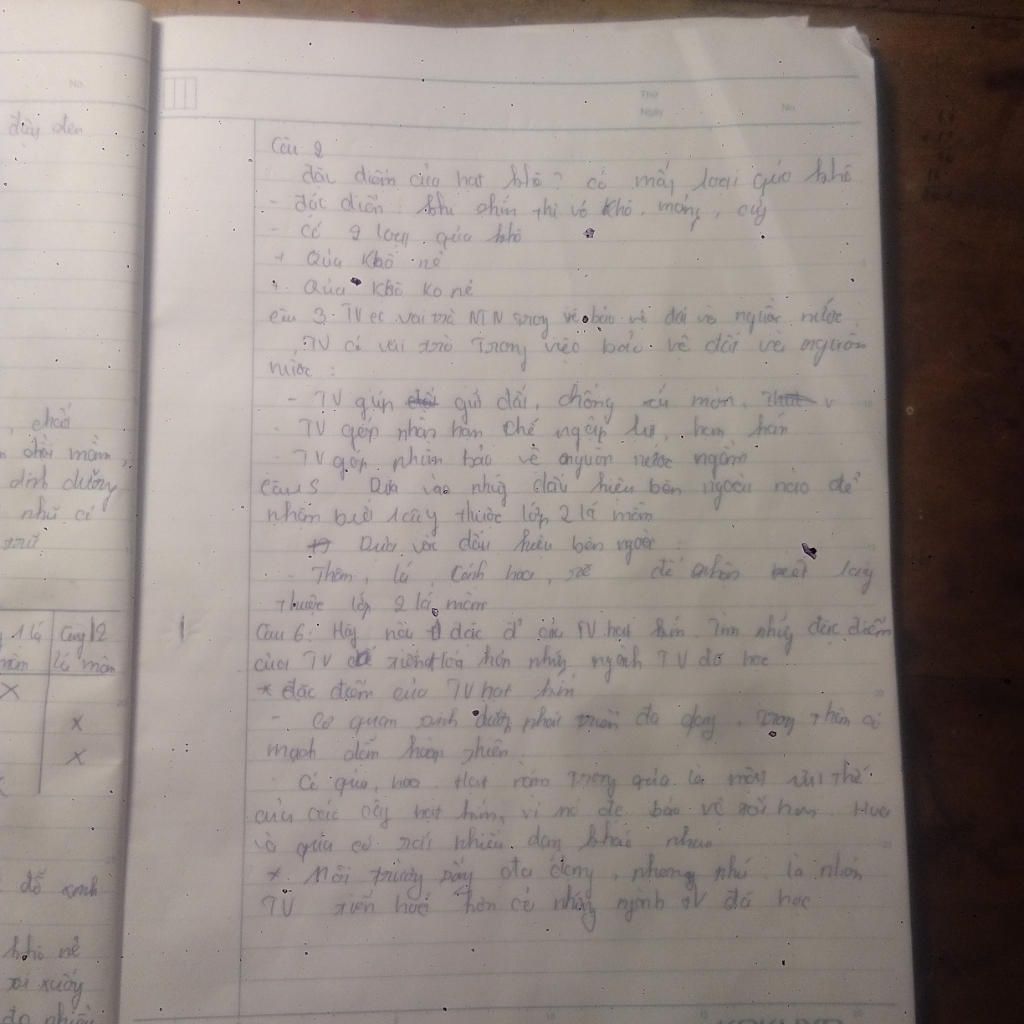 Câu 2
đặc điểm của hạt khô? có mấy loại qủa khô
- đặc điểm: khi chín thì vỏ khô, mỏng, cứng
- Có 2 loại qủa khô
+ Qủa khô nẻ
+ Qủa khô ko nẻ
Câu 3. TV có vai trò NTN trong bảo vệ đất và nguồn nước
TV có vai trò Trong việc bảo vệ đất và nguồn
nước:
- TV giúp giữ đất, chống mòn,
- TV góp phần hạn chế ngập lụt, hạn hán
- TV góp phần bảo vệ nguồn nước ngầm
Câu 5 Dựa vào những dấu hiệu bên ngoài nào để
nhận biết 1 cây thuộc lớp 2 lá mầm
Dựa vào dấu hiệu bên ngoài:
- Thân, lá, Cánh hoa, rễ để nhận biết 1 cây
thuộc lớp 2 lá mầm
Câu 6: Hãy nêu đặc đ² của TV hạt kín. Tìm những đặc điểm
của TV hơn những ngành TV đã học
* đặc điểm của TV hạt kín
- Cơ quan sinh dưỡng phát triển đa dạng, trong thân có
mạch dẫn hoàn thiện
- Có qủa, hoa. Hạt nằm trong qủa là một ưu thế
của các cây hạt kín, vì nó đc bảo vệ tốt hơn. Hoa
và qủa có rất nhiều dạng khác nhau
* Môi trường sống đa dạng, phong phú là nhóm
TV tiến hoá hơn cả những ngành TV đã học
điều đen
, chất
chồi mầm,
dinh dưỡng
như có
trữ
1 lá Cây 2
mầm lá mầm
X
X
X
khô nẻ
rơi xuống
KOKUYO
Thứ
Ngày
No.
No.